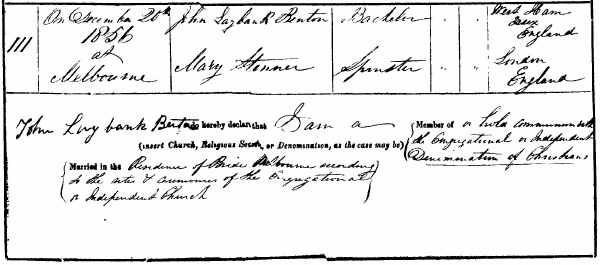 111
On December 20th
1856
at
Melbourne
John Laybank Benton
Bachelor
" "
West Ham
Essex
England
Mary Stonner
Spinster
" "
London
England
John Laybank Benton do hereby declare that I am a
(insert Church, Religious Society, or Denomination, as the case may be)
Member of or hold communion with
the Congregational or Independent
Denomination of Christians
Married in the Residence of Bride Melbourne according
to the rites & ceremonies of the Congregational
or Independent Church